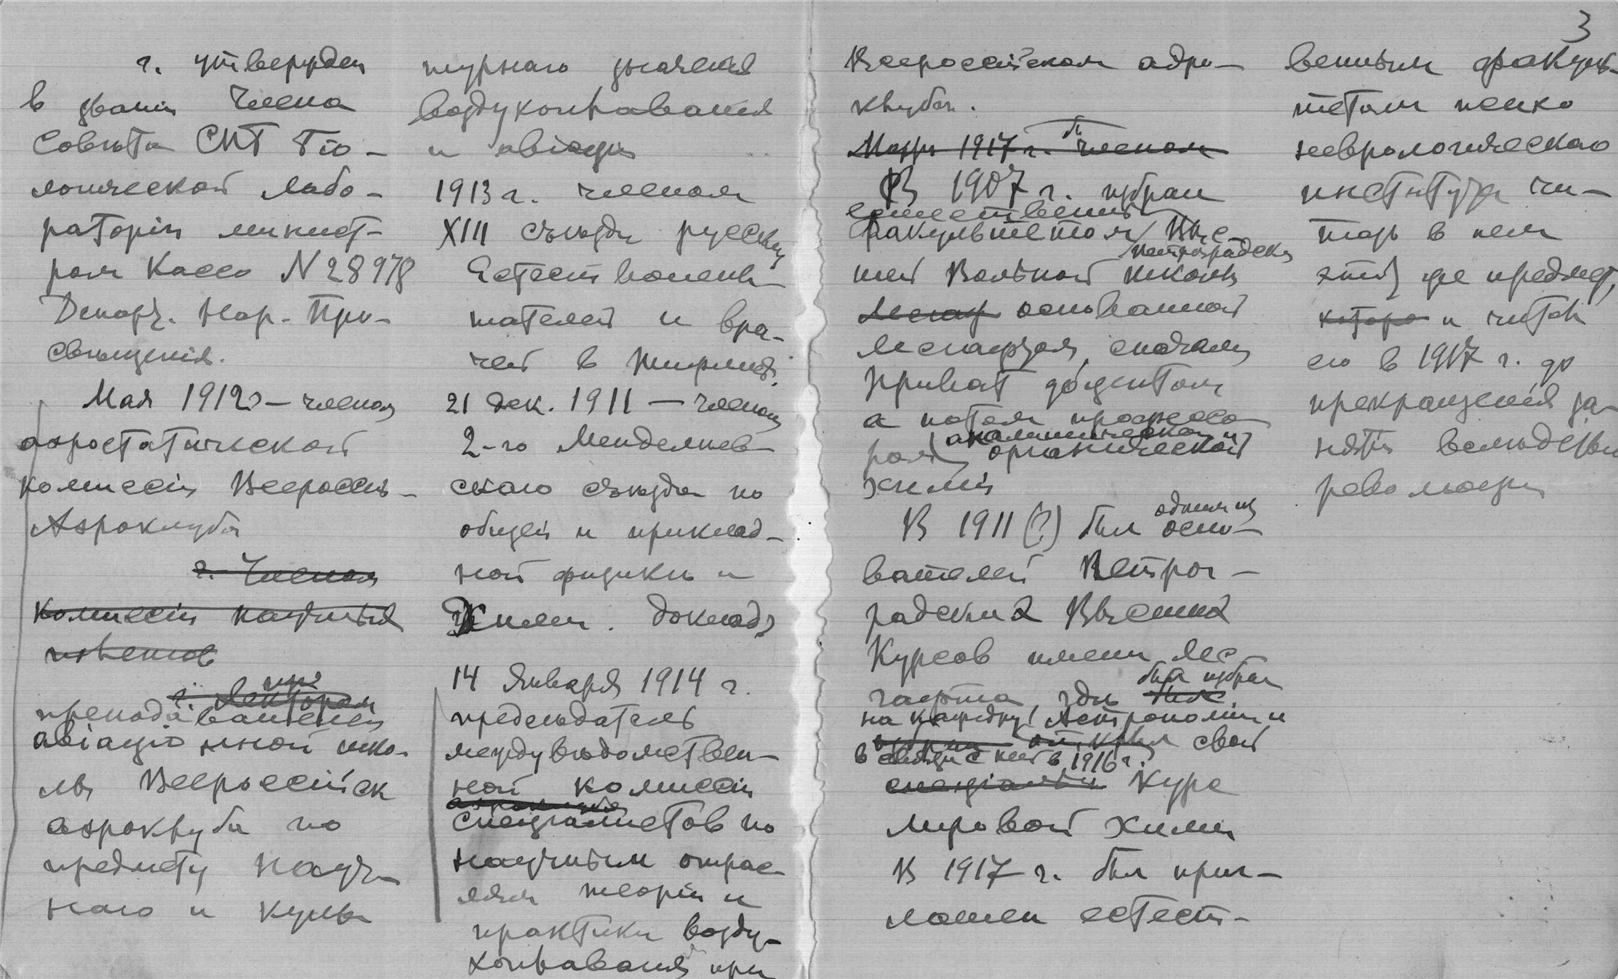 3
г. утвержден
в званіи члена
Совѣта СПб Біо-
логической лабо-
раторіи минист-
ром Кассо N 28978
Департ. Нар. Про-
свѣщенія.
Мая 1912 – членом
аэростатической
комиссіи Всеросс.
Аэроклуба
г. Членом
комиссіи научных
полетов
г. Лектором
преподавателем
авіаціонной шко-
лы Всероссійск
аэроклуба по
предмету науч-
наго и куль-
турнаго значенія
воздухоплаванія
и авіаціи
1913 г. членом
XIII съѣзда русских
Естествоиспы-
тателей и вра-
чей в Тифлисѣ.
21 дек. 1911 – членом
2-го Менделѣев-
скаго съѣзда по
общей и приклад-
ной физикѣ и
Химіи. доклад
14 Января 1914 г.
предсѣдатель
междувѣдомствен-
ной комиссіи
аэроклуба
спеціалистов по
научным отрас-
лям теоріи и
практики возду-
хоплаванія при
Всероссійском аэро-
клубѣ.
Марта 1917 г. б. членом
В 1907 г. избран
естественным
факультетом Выс-
Петроградской
шей Вольной школы
Лесгаф основанной
Лесгафтом, сначала
приват доцентом
а потом профессо-
аналитической и
ром органической
химіи
В 1911 (?) был одним из осно-
вателей Петро-
градских Высших
Курсов имени Лес-
гафта гдѣ был избран
на кафедру Астрономіи и
открыл свой
в связи с ней в 1916 г.
спеціальный Курс
міровой химіи
В 1917 г. был приг-
лашен естест-
венным факуль-
тетом психо
неврологическаго
института чи-
тать в нем
этот же предмет,
которо и читал
его в 1917 г. до
прекращенія за-
нятій вслѣдствіи
революціи